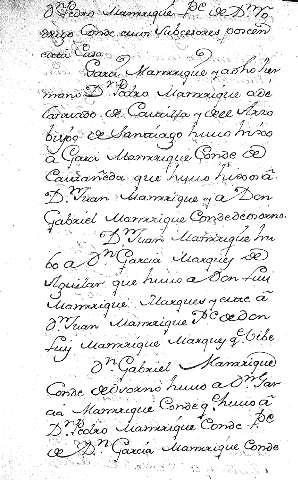 Dn. Pedro Manrrique Pe. de Dn. Ro
drigo Conde cuios Subcesores poseen
esta Casa
Garci Manrrique ya dho her
mano Dn. Pedro Manrrique Ade
lantado de Castilla y de el Arzo
bispo de Santiago huuo hijos
â Garci Manrrique Conde de
Castañeda que huuo hijos â
Dn. Juan Manrrique y a Don
Gabriel Manrrique Conde de osorno.
Dn. Juan Manrrique hu
bo â Dn. Garcia Marques de
Aguilar que huuo a Don Luis
Manrrique Marques y este â
Dn. Juan Manrrique Pe. de Don
Luis Manrrique Marques qe. vibe
Dn. Gabriel Manrrique
Conde de Osorno huuo â Dn. Gar
cia Manrrique Conde qe. huuo â
Dn. Pedro Manrrique Conde Pe.
de Dn. Garcia Manrrique Conde